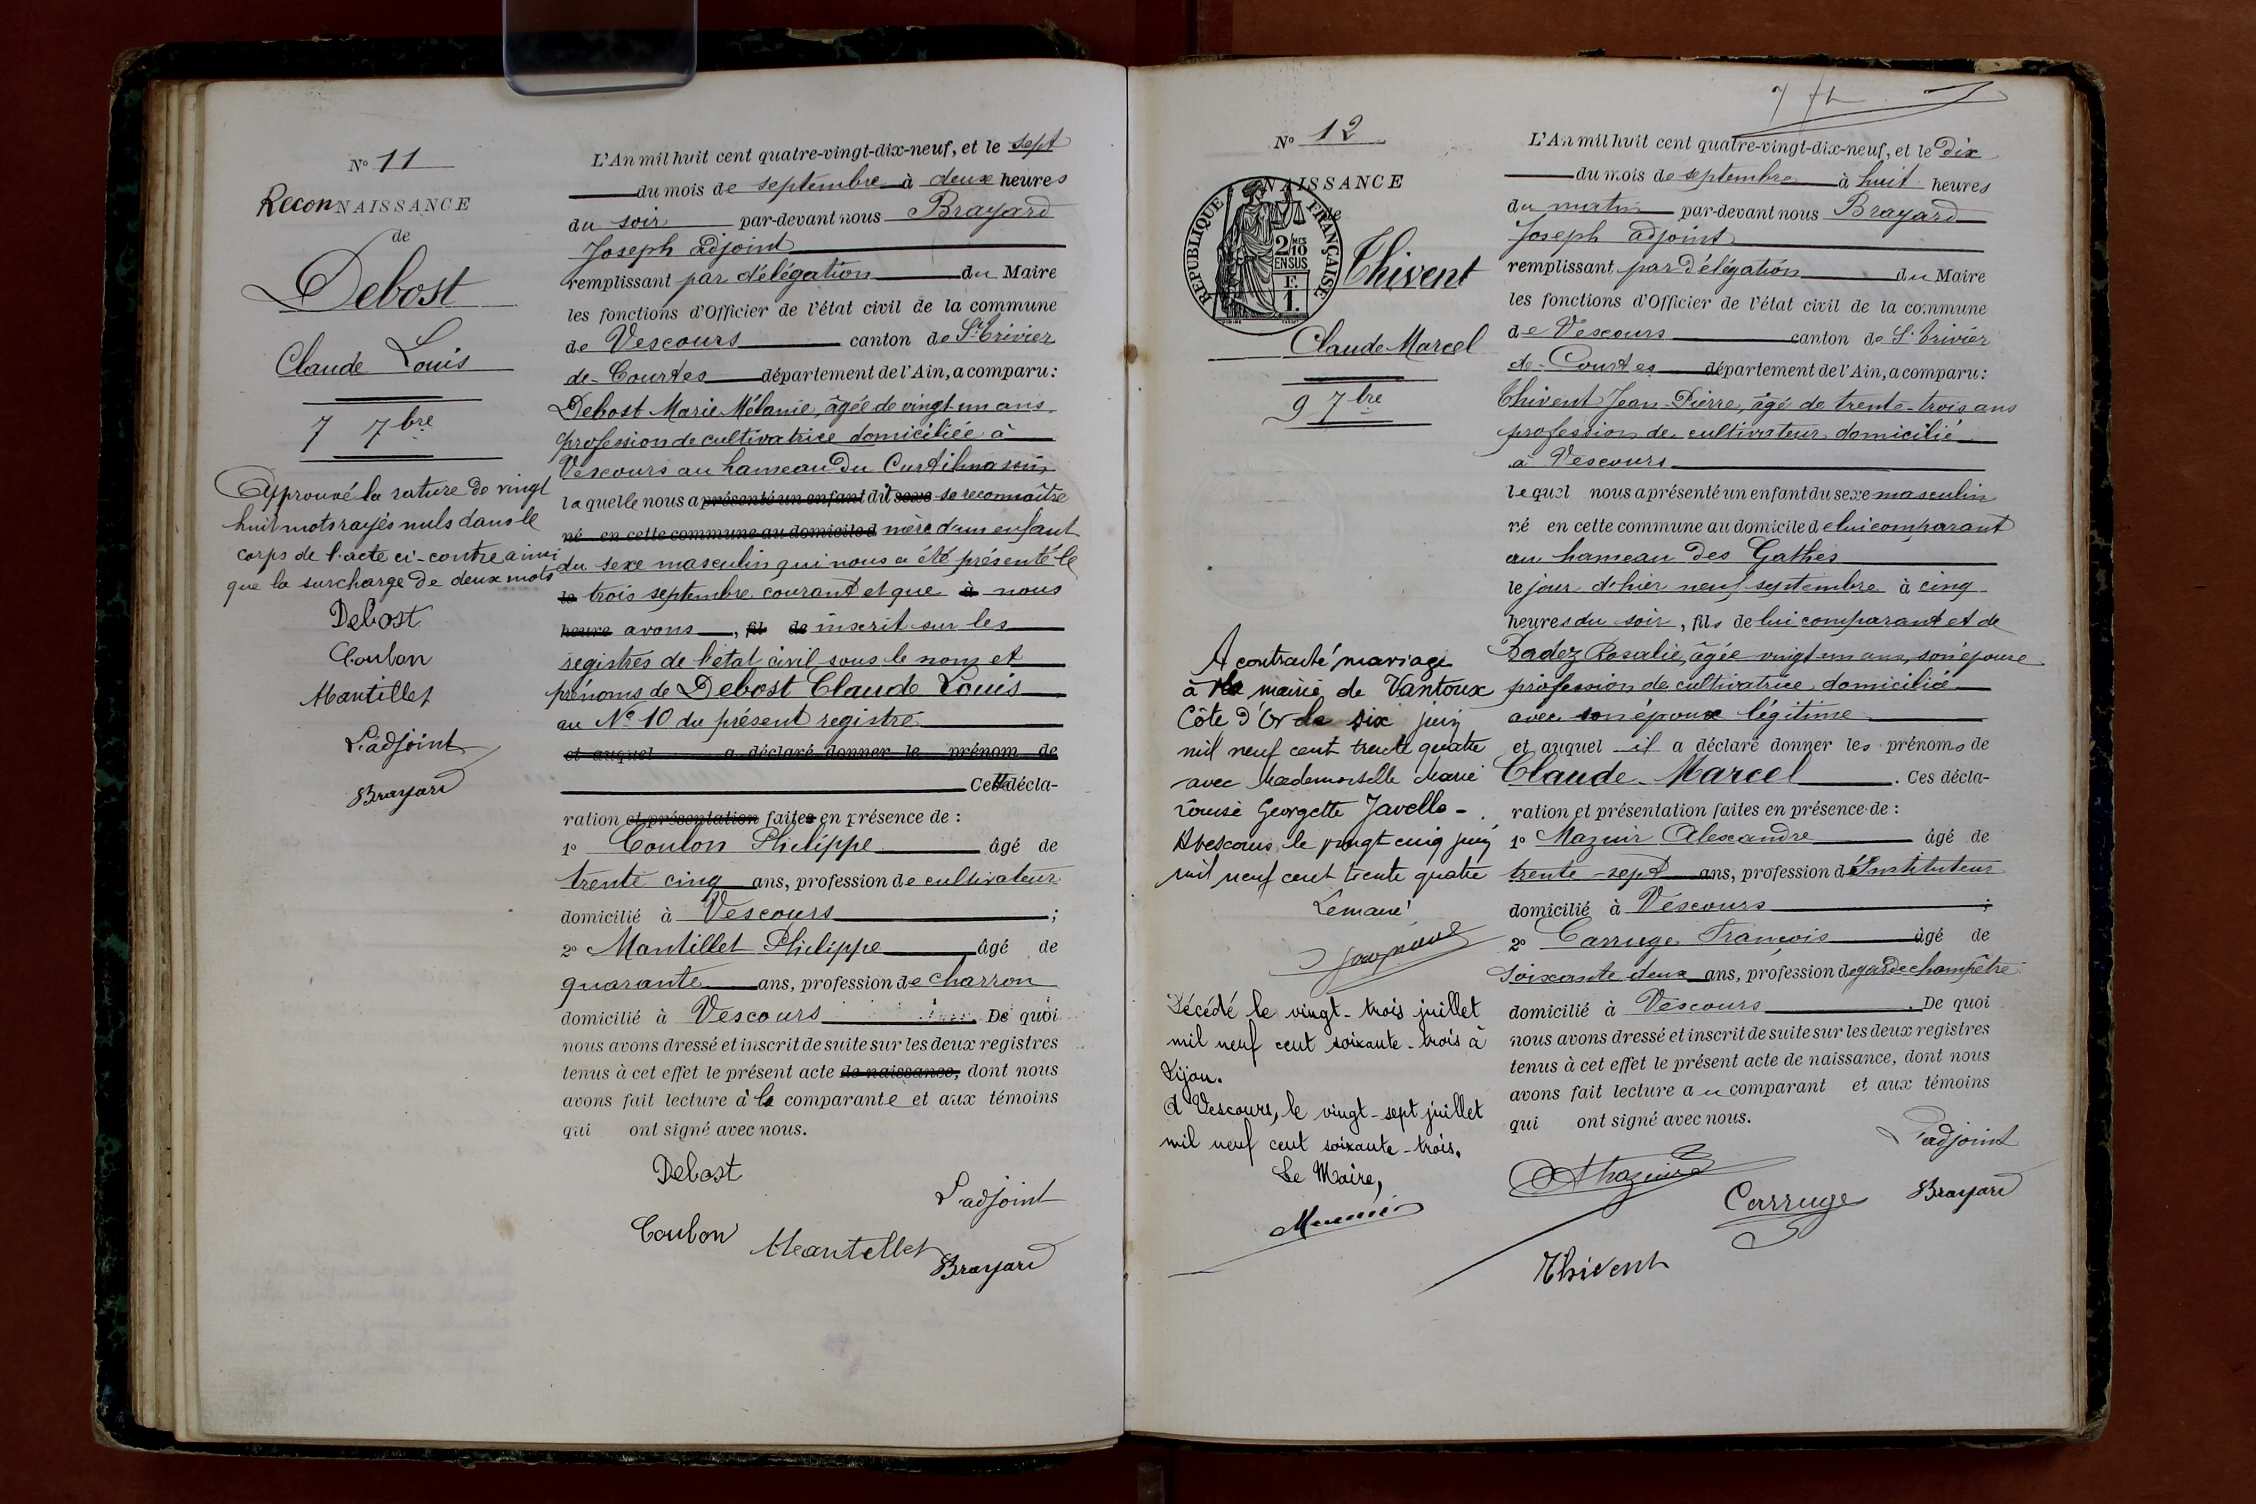 N° 11
ReconNAISSANCE
de
Debost
Claude Louis
7 7bre
Approuvé la rature de vingt
huit mots rayés nuls dans le
corps de l'acte ci-contre ainsi
que la surcharge de deux mots
Debost
Coulon
Mantillet
L'adjoint
Brayard
L'An mil huit cent quatre-vingt-dix-neuf, et le sept
du mois de septembre à deux heures
du soir par-devant nous Brayard
Joseph adjoint
remplissant par délégation du Maire
les fonctions d'Officier de l'état civil de la commune
de Vescours canton de St Trivier
de-Courtes département de l'Ain, a comparu:
Debost Marie Mélanie, âgée de vingt-un ans
profession de cultivatrice domiciliée à
Vescours au hameau du Curtilmassin
laquelle nous a présenté un enfant dit sexe se reconnaître
né en cette commune au domicile d mère d'un enfant
du sexe masculin qui nous a été présenté le
le trois septembre courant et que à nous
heure avons, fil de inscrit sur les
registres de l'état civil sous le nom et
prénoms de Debost Claude Louis
au N° 10 du présent registre
et auquel a déclaré donner le prénom de
Cette décla-
ration et présentation faites en présence de :
1° Coulon Philippe âgé de
trente cinq ans, profession de cultivateur
domicilié à Vescours ;
2° Mantillet Philippe âgé de
quarante ans, profession de charron
domicilié à Vescours . De quoi
nous avons dressé et inscrit de suite sur les deux registres
tenus à cet effet le présent acte de naissance, dont nous
avons fait lecture à la comparante et aux témoins
qui ont signé avec nous.
Debost
L'adjoint
Coulon Mantillet
Brayard
N° 12
NAISSANCE
de
RÉPUBLIQUE FRANÇAISE
2/10 MES
EN SUS
F.
1.
Thivent
Claude Marcel
9 7bre
A contracté mariage
à la mairie de Vantoux
Côte d'Or le six juin
mil neuf cent trente quatre
avec Mademoiselle Marie
Louise Georgette Javelle -
A Vescours le vingt cinq juin
mil neuf cent trente quatre
Le maire
Décédé le vingt-trois juillet
mil neuf cent soixante-trois à
Dijon.
A Vescours, le vingt-sept juillet
mil neuf cent soixante-trois.
Le Maire,
L'An mil huit cent quatre-vingt-dix-neuf, et le dix
du mois de septembre à huit heures
du matin par-devant nous Brayard
Joseph adjoint
remplissant par délégation du Maire
les fonctions d'Officier de l'état civil de la commune
de Vescours canton de St Trivier
de-Courtes département de l'Ain, a comparu:
Thivent Jean-Pierre, âgé de trente-trois ans
profession de cultivateur domicilié
à Vescours
lequel nous a présenté un enfant du sexe masculin
né en cette commune au domicile de lui comparant
au hameau des Gathes
le jour d'hier neuf septembre à cinq
heures du soir, fils de lui comparant et de
Badez Rosalie, âgée vingt un ans, son épouse
profession de cultivatrice domiciliée
avec son époux légitime
et auquel il a déclaré donner les prénoms de
Claude Marcel . Ces décla-
ration et présentation faites en présence de :
1° Mazuir Alexandre âgé de
trente-sept ans, profession d'Instituteur
domicilié à Vescours ;
2° Carruge François âgé de
soixante deux ans, profession de garde champêtre
domicilié à Vescours . De quoi
nous avons dressé et inscrit de suite sur les deux registres
tenus à cet effet le présent acte de naissance, dont nous
avons fait lecture au comparant et aux témoins
qui ont signé avec nous.
L'adjoint
AMazuir
Carruge Brayard
Thivent